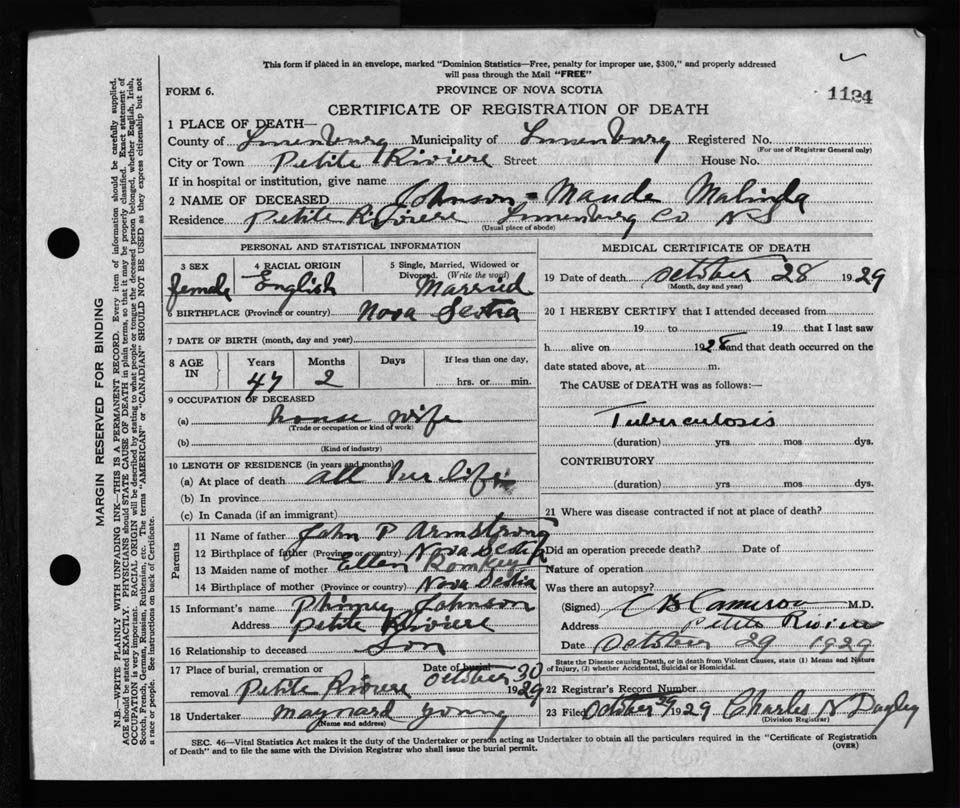 This form if placed in an envelope, marked "Dominion Statistics—Free, penalty for improper use, $300," and properly addressed
will pass through the Mail "FREE"
FORM 6. PROVINCE OF NOVA SCOTIA 1124
CERTIFICATE OF REGISTRATION OF DEATH
1 PLACE OF DEATH—
County of Lunenburg Municipality of Lunenburg Registered No.
(For use of Registrar General only)
City or Town Petite Riviere Street House No.
If in hospital or institution, give name
2 NAME OF DECEASED Johnson - Maude Malinda
Residence Petite Riviere Lunenburg Co NS
(Usual place of abode)
PERSONAL AND STATISTICAL INFORMATION
3 SEX 4 RACIAL ORIGIN 5 Single, Married, Widowed or
Divorced (Write the word)
female English Married
6 BIRTHPLACE (Province or country) Nova Scotia
7 DATE OF BIRTH (month, day and year)
8 AGE IN Years Months Days If less than one day,
47 2 hrs. or min.
9 OCCUPATION OF DECEASED
(a) house wife
(Trade or occupation or kind of work)
(b)
(Kind of industry)
10 LENGTH OF RESIDENCE (in years and months)
(a) At place of death all her life
(b) In province
(c) In Canada (if an immigrant)
Parents
11 Name of father John P Armstrong
12 Birthplace of father (Province or country) Nova Scotia
13 Maiden name of mother Ellen Romkey
14 Birthplace of mother (Province or country) Nova Scotia
15 Informant's name Phinney Johnson
Address Petite Riviere
16 Relationship to deceased Son
17 Place of burial, cremation or Date of burial October 30
removal Petite Riviere 1929
18 Undertaker Maynard Young
(Name and address)
MEDICAL CERTIFICATE OF DEATH
19 Date of death October 28 1929
(Month, day and year)
20 I HEREBY CERTIFY that I attended deceased from
19 to 19 that I last saw
h alive on 1928 and that death occurred on the
date stated above, at m.
The CAUSE of DEATH was as follows:—
Tuberculosis
(duration) yrs mos dys.
CONTRIBUTORY
(duration) yrs mos dys.
21 Where was disease contracted if not at place of death?
Did an operation precede death? Date of
Nature of operation
Was there an autopsy?
(Signed) C B Cameron M.D.
Address Petite Riviere
Date October 29 1929
State the Disease causing Death, or in death from Violent Causes, state (1) Means and Nature
of Injury, (2) whether Accidental, Suicidal or Homicidal.
22 Registrar's Record Number
23 Filed October 29 1929 Charles N Dagley
(Division Registrar)
SEC. 46—Vital Statistics Act makes it the duty of the Undertaker or person acting as Undertaker to obtain all the particulars required in the "Certificate of Registration
of Death" and to file the same with the Division Registrar who shall issue the burial permit. (OVER)
MARGIN RESERVED FOR BINDING
N.B.—WRITE PLAINLY, WITH UNFADING INK—THIS IS A PERMANENT RECORD. Every item of information should be carefully supplied.
AGE should be stated EXACTLY. PHYSICIANS should STATE CAUSE OF DEATH in plain terms, so that it may be properly classified. Exact statement of
OCCUPATION is very important. RACIAL ORIGIN will be described by stating to what people or tongue the deceased person belonged, whether English, Irish,
Scotch, French, German, Russian, Ruthenian, etc. The terms "AMERICAN" or "CANADIAN" SHOULD NOT BE USED as they express citizenship but not
a race or people. See instructions on back of Certificate.